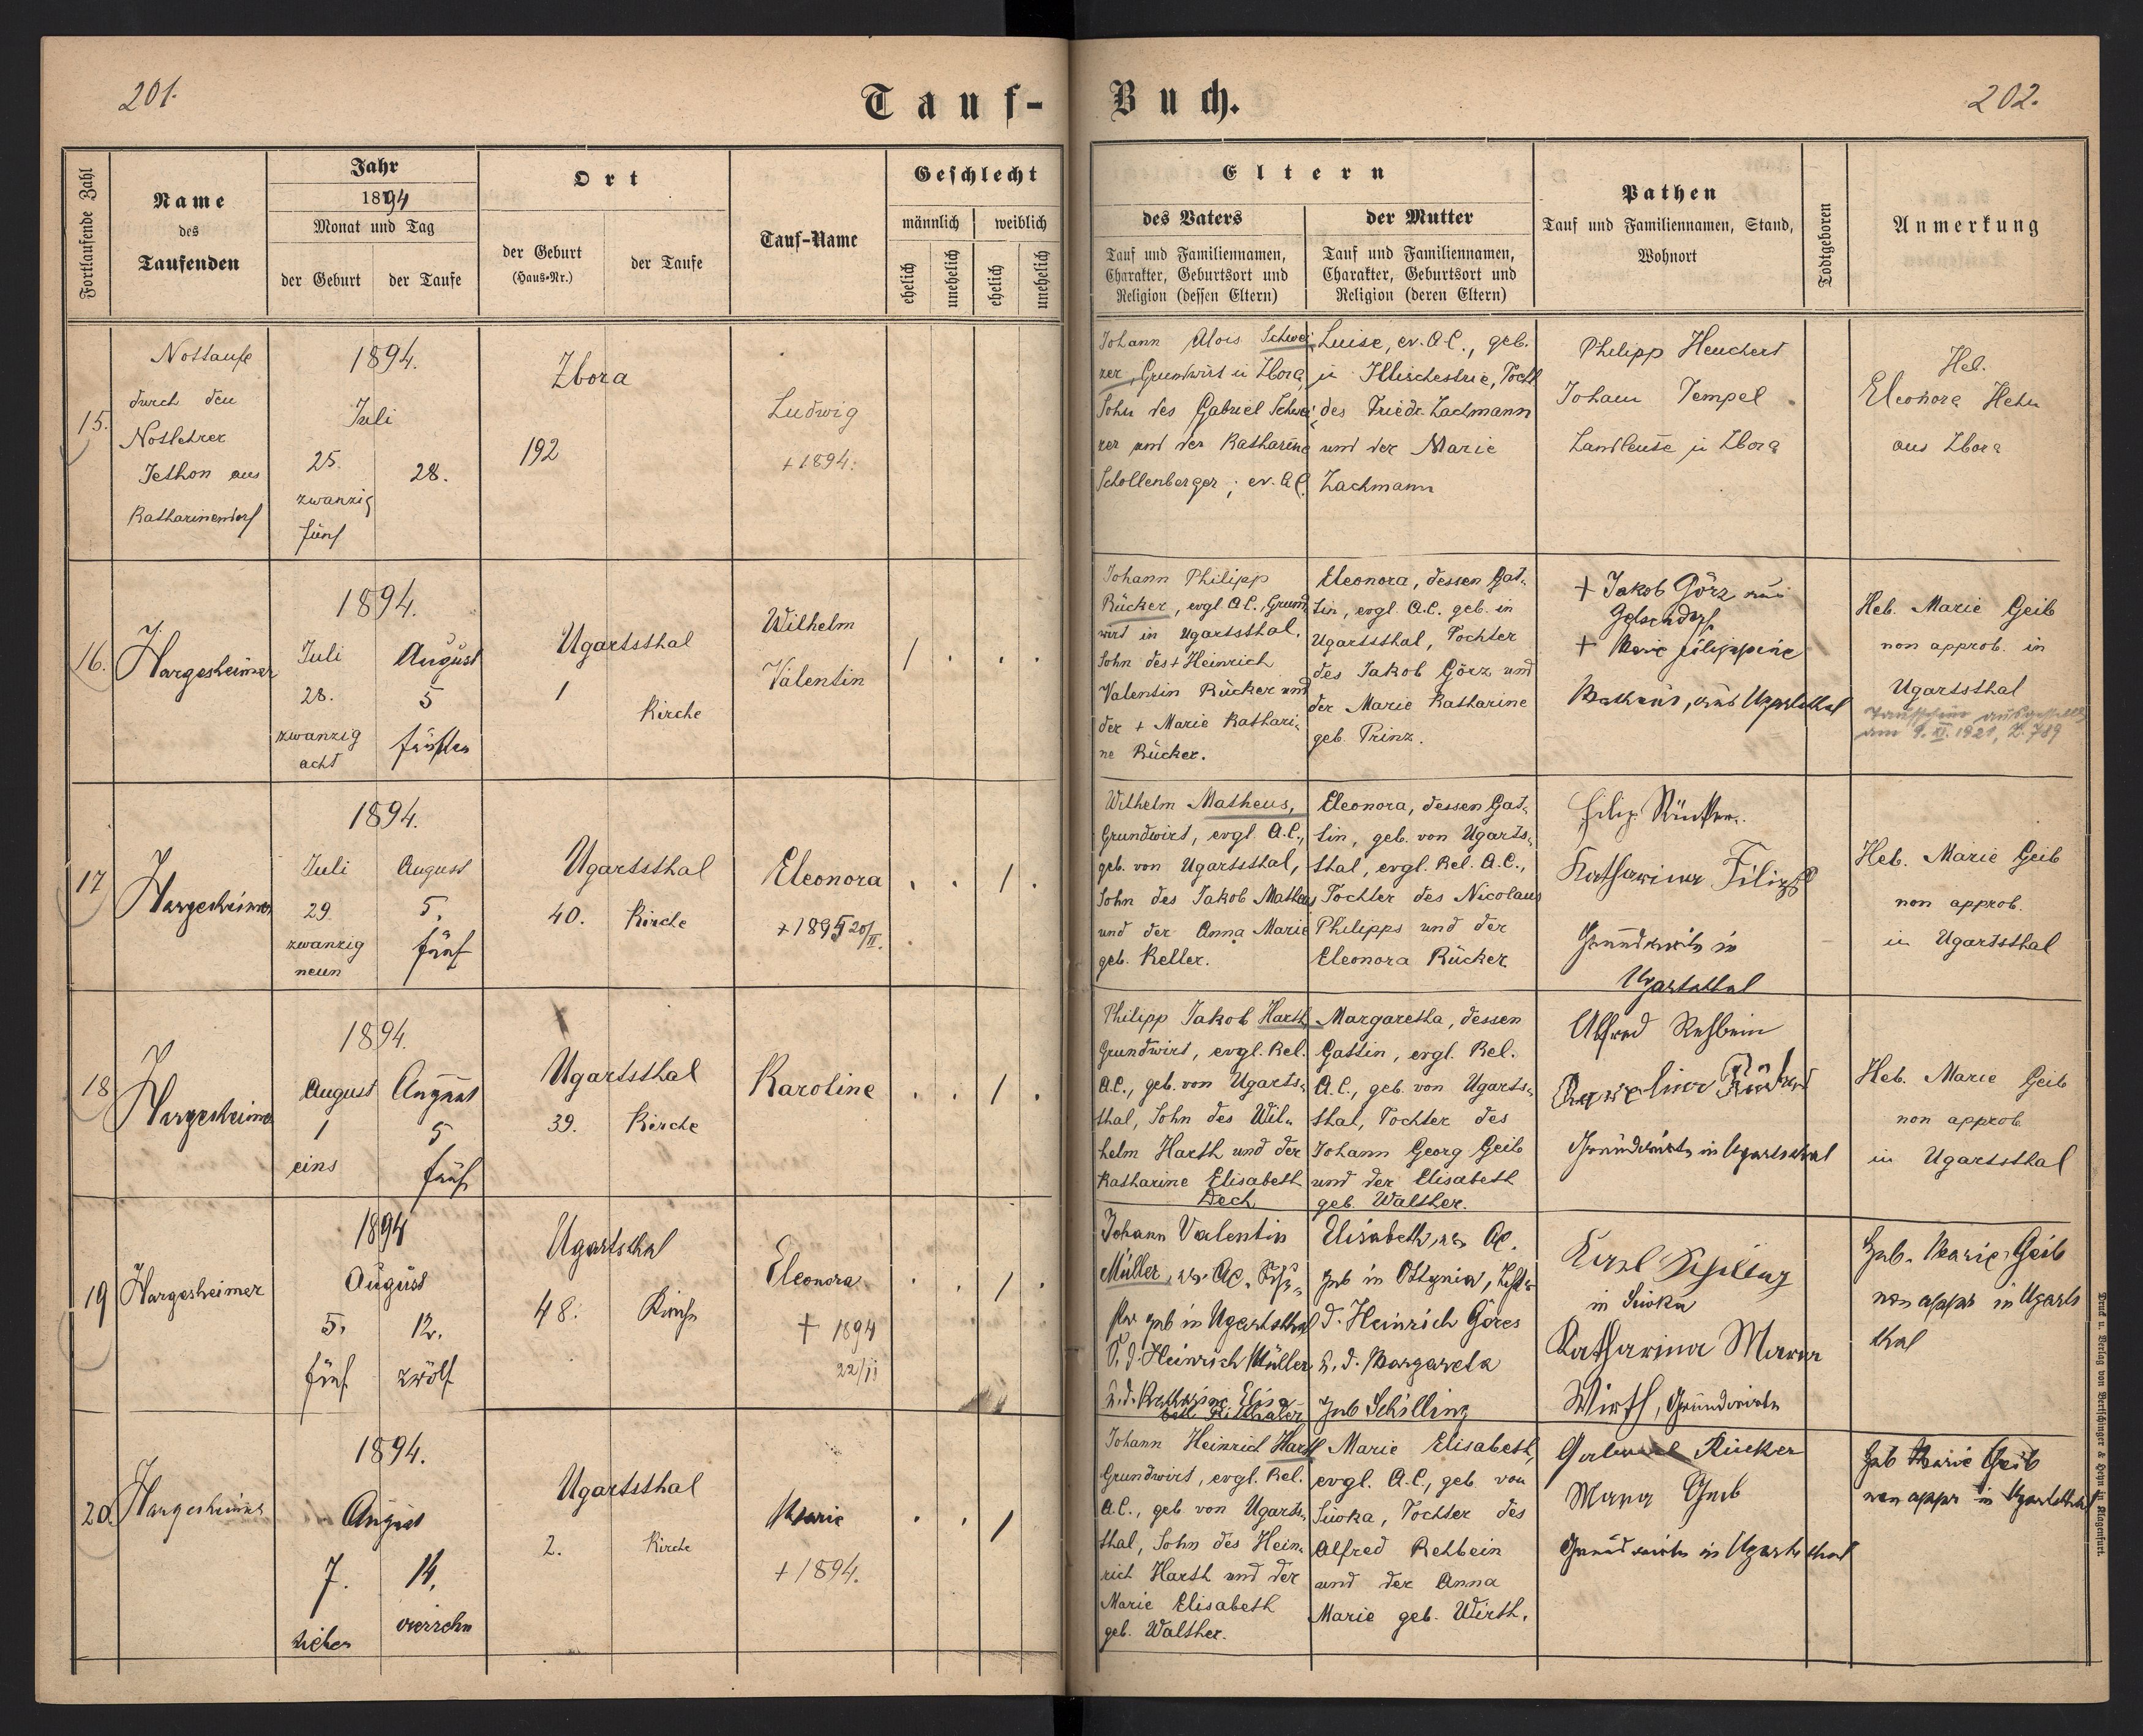 201.
Tauf-
Buch.
202.
Fortlaufende Zahl
Name
des
Taufenden
Jahr
1894
Monat und Tag
der Geburt
der Taufe
Ort
der Geburt
(Haus-Nr.)
der Taufe
Tauf-Name
Geschlecht
männlich
weiblich
ehelich
unehelich
ehelich
unehelich
Eltern
des Vaters
Tauf und Familiennamen,
Charakter, Geburtsort und
Religion (dessen Eltern)
der Mutter
Tauf und Familiennamen,
Charakter, Geburtsort und
Religion (deren Eltern)
Pathen
Tauf und Familiennamen, Stand,
Wohnort
Todtgeboren
Anmerkung
15.
Nottaufe
durch den
Notlehrer
Jethon aus
Katharinendorf
1894.
Juli
25.
zwanzig
fünf
28.
Zbora
192
Ludwig
+ 1894.
Johann Alois Schwei
zer, Grundwirt in Zbora,
Sohn des Gabriel Schwei
zer und der Katharine
Schollenberger; ev. A.C.
Luise, ev. A.C., geb.
in Illischestie, Tocht
des Friedr. Zachmann
und der Marie
Zachmann
Philipp Heuchert
Johann Tempel
Landleute in Zbora
Heb.
Eleonora Hehn
aus Zbora
16.
J.
Hargesheimer
1894.
Juli
28.
zwanzig
acht
August
5
fünften
Ugartsthal
1
Kirche
Wilhelm
Valentin
1 . . .
Johann Philipp
Rücker, evgl. A.C., Grund
wirt in Ugartsthal,
Sohn des + Heinrich
Valentin Rücker und
der + Marie Kathari-
ne Rücker.
Eleonora, dessen Gat-
tin, evgl. A.C. geb. in
Ugartsthal, Tochter
des Jakob Görz und
der Marie Katharine
geb. Prinz.
+ Jakob Görz aus
Gelsendorf
+ Marie filippine
Matheus, aus Ugartsthal
Heb. Marie Geib
non approb. in
Ugartsthal
Taufschein ausgestellt
am 9. XI. 1921, Z. 789
17
J.
Hargesheimer
1894.
Juli
29
zwanzig
neun
August
5.
fünf
Ugartsthal
40.
Kirche
Eleonora
+ 1895 20/II.
. . 1 .
Wilhelm Matheus,
Grundwirt, evgl. A.C.,
geb. von Ugartsthal,
Sohn des Jakob Matheus
und der Anna Marie
geb. Keller.
Eleonora, dessen Gat-
tin, geb. von Ugarts-
thal, evgl. Rel. A.C.,
Tochter des Nicolaus
Philipps und der
Eleonora Rücker
Filip
Katharina
Grundwirte in
Ugartsthal
Heb. Marie Geib
non approb.
in Ugartsthal
18
J.
Hargesheimer
1894.
August
1
eins
August
5
fünf
Ugartsthal
39.
Kirche
Karoline
. . 1 .
Philipp Jakob Harth
Grundwirt, evgl. Rel.
A.C., geb. von Ugarts-
thal, Sohn des Wil-
helm Harth und der
Katharine Elisabeth
Dech
Margaretha, dessen
Gattin, evgl. Rel.
A.C., geb. von Ugarts-
thal, Tochter des
Johann Georg Geib
und der Elisabeth
geb. Walther.
Alfred Rehbein
Grundwirte in Ugartsthal
Heb. Marie Geib
non approb
in Ugartsthal
19
J.
Hargesheimer
1894
August
5.
fünf
12.
zwölf
Ugartsthal
48.
Kirche
Eleonora
+ 1894
22/11
. . 1 .
Johann Valentin
Müller, ev. AC.
geb in Ugartsthal
S. d. Heinrich Müller
u. d. Katharine Elisa
beth Ritthaler
Elisabeth, ev. AC.
geb in Ottynia,
d. Heinrich Göres
u. d. Margareta
geb Schilling
Karl Schilling
in Siwka
Katharina Maria
Wirth, Grundwirte
Heb. Marie Geib
non appr in Ugarts
thal
20.
J.
Hargesheimer
1894.
August
7.
sieben
14.
vierzehn
Ugartsthal
2.
Kirche
Marie
+ 1894.
. . 1
Johann Heinrich Harth
Grundwirt, evgl. Rel.
A.C., geb. von Ugarts-
thal, Sohn des Hein-
rich Harth und der
Marie Elisabeth
geb. Walther.
Marie Elisabeth,
evgl. A.C., geb. von
Siwka, Tochter des
Alfred Rehbein
und der Anna
Marie geb. Wirth.
Rücker
Maria Geib
Grundwirte in Ugartsthal
Heb Marie Geib
non appr in Ugartsthal
Druck u. Verlag von Bertschinger & Heyn in Klagenfurt.